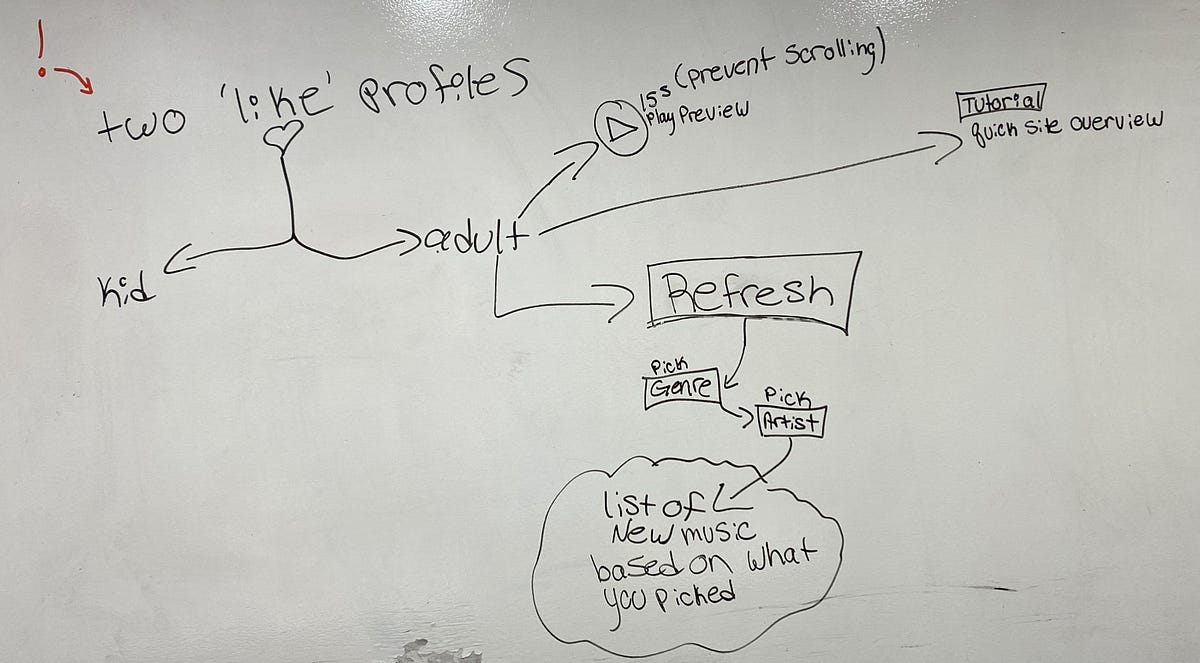 !
two 'like' profiles
15s (prevent scrolling)
play preview
Tutorial
quick site overview
adult
Kid
Refresh
Pick
Genre
Pick
Artist
list of
New music
based on what
you picked